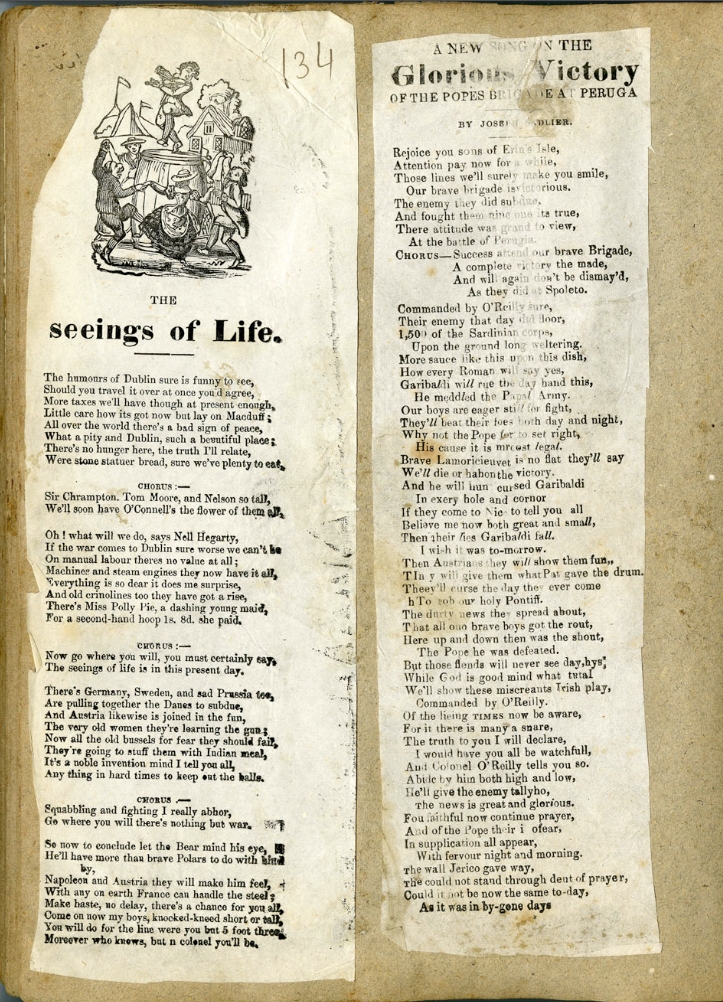 134
THE
seeings of Life.
The humours of Dublin sure is funny to see,
Should you travel it over at once you'd agree,
More taxes we'll have though at present enough,
Little care how its got now but lay on Macduff;
All over the world there's a bad sign of peace,
What a pity and Dublin, such a beautiful place;
There's no hunger here, the truth I'll relate,
Were stone statuer bread, sure we've plenty to eat,
CHORUS:—
Sir Chrampton. Tom Moore, and Nelson so tall,
We'll soon have O'Connell's the flower of them all,
Oh! what will we do, says Nell Hegarty,
If the war comes to Dublin sure worse we can't be
On manual labour theres no value at all;
Machines and steam engines they now have it all,
Everything is so dear it does me surprise,
And old crinolines too they have got a rise,
There's Miss Polly Pie, a dashing young maid,
For a second-hand hoop 1s. 8d. she paid.
CHORUS:—
Now go where you will, you must certainly say,
The seeings of life is in this present day.
There's Germany, Sweden, and sad Prussia too,
Are pulling together the Danes to subdue,
And Austria likewise is joined in the fun,
The very old women they're learning the gun;
Now all the old bussels for fear they should fail,
They're going to stuff them with Indian meal,
It's a noble invention mind I tell you all,
Any thing in hard times to keep out the balls.
CHORUS.—
Squabbling and fighting I really abhor,
Go where you will there's nothing but war.
So now to conclude let the Bear mind his eye,
He'll have more than brave Polars to do with
by,
Napoleon and Austria they will make him feel,
With any on earth France can handle the steel;
Make haste, no delay, there's a chance for you all,
Come on now my boys, knocked-kneed short or tall,
You will do for the line were you but 5 foot three,
Moreover who knows, but n colonel you'll be.
A NEW SONG ON THE
Glorious Victory
OF THE POPES BRIGADE AT PERUGA
BY JOSEPH
Rejoice you sons of Erin's Isle,
Attention pay now for a while,
Those lines we'll surely make you smile,
Our brave brigade is victorious.
The enemy they did subdue,
And fought them nine one its true,
There attitude was grand to view,
At the battle of Perugia.
CHORUS—Success attend our brave Brigade,
A complete victory the made,
And will again don't be dismay'd,
As they did at Spoleto.
Commanded by O'Reilly sure,
Their enemy that day did floor,
1,500 of the Sardinian corps,
Upon the ground long weltering.
More sauce like this upon this dish,
How every Roman will say yes,
Garibaldi will rue the day hand this,
He meddled the Papal Army.
Our boys are eager still for fight,
They'll beat their foes both day and night,
Why not the Pope for to set right,
His cause it is legal.
Brave Lamoricieuvet is no flat they'll say
We'll die or habonthe victory.
And he will hun cursed Garibaldi
In exery hole and cornor
If they come to Nic to tell you all
Believe me now both great and small,
Then their fies Garibaldi fall.
I wish it was to-morrow.
Then Austrians they will show them fun,,
y will give them what Pat gave the drum.
Theey'll curse the day they ever come
hTo rob our holy Pontiff.
The durty news they spread about,
That all ono brave boys got the rout,
Here up and down then was the shout,
The Pope he was defeated.
But those fiends will never see day,hys;
While God is good mind what tutal
We'll show these miscreants Irish play,
Commanded by O'Reilly.
Of the lieing TIMES now be aware,
For it there is many a snare,
The truth to you I will declare,
I would have you all be watchfull,
And Colonel O'Reilly tells you so.
Abide by him both high and low,
He'll give the enemy tallyho,
The news is great and glorious.
Fou faithful now continue prayer,
And of the Pope their i ofear,
In supplication all appear,
With fervour night and morning.
The wall Jerico gave way,
The could not stand through dent of prayer,
Could it not be now the same to-day,
As it was in by-gone days